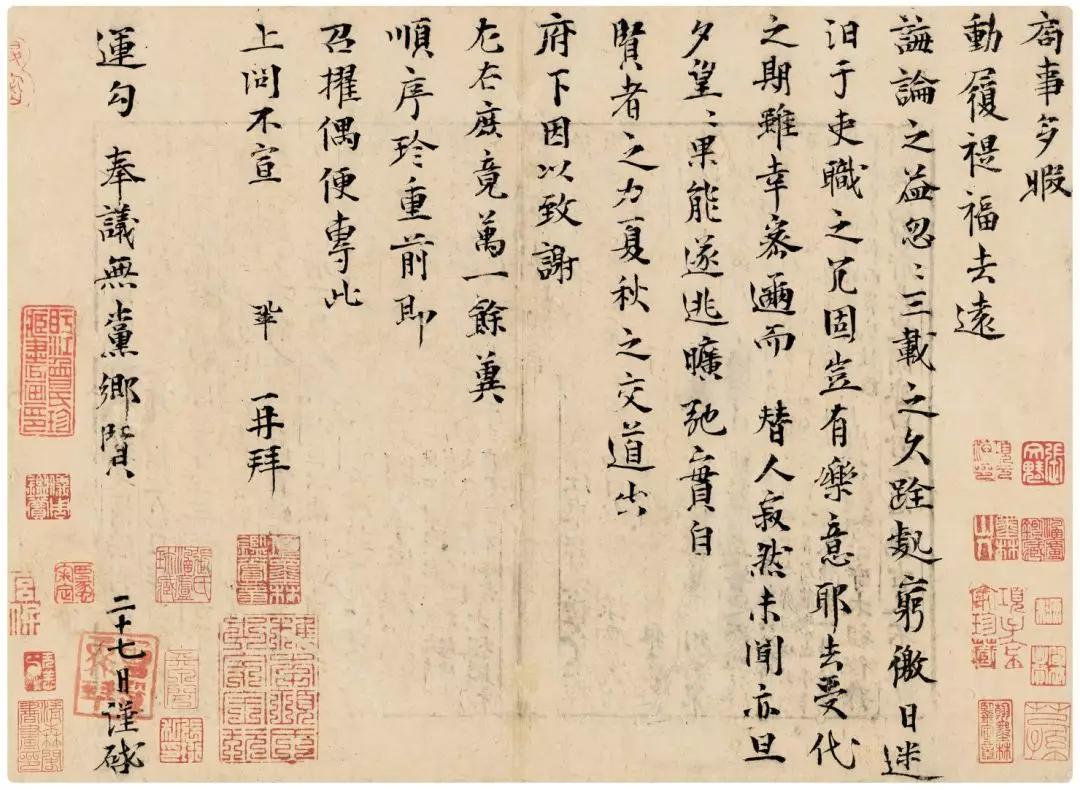 局事多暇
動履禔福去遠
誨論之益忽〻三載之久跧處窮徼日迷
汩于吏職之冗固豈有樂意耶去受代
之期雖幸密邇而 替人寂然未聞亦旦
夕望〻果能遂逃曠弛實自
賢者之力夏秋之交道出
府下因以致謝
左右庶竟萬一餘兾
順序珍重前即
召擢偶便專此
上問不宣 鞏 再拜
運勾 奉議無黨鄉賢
二十七日謹啟
盱江曾氏珍藏書畫印
項子京家珍藏